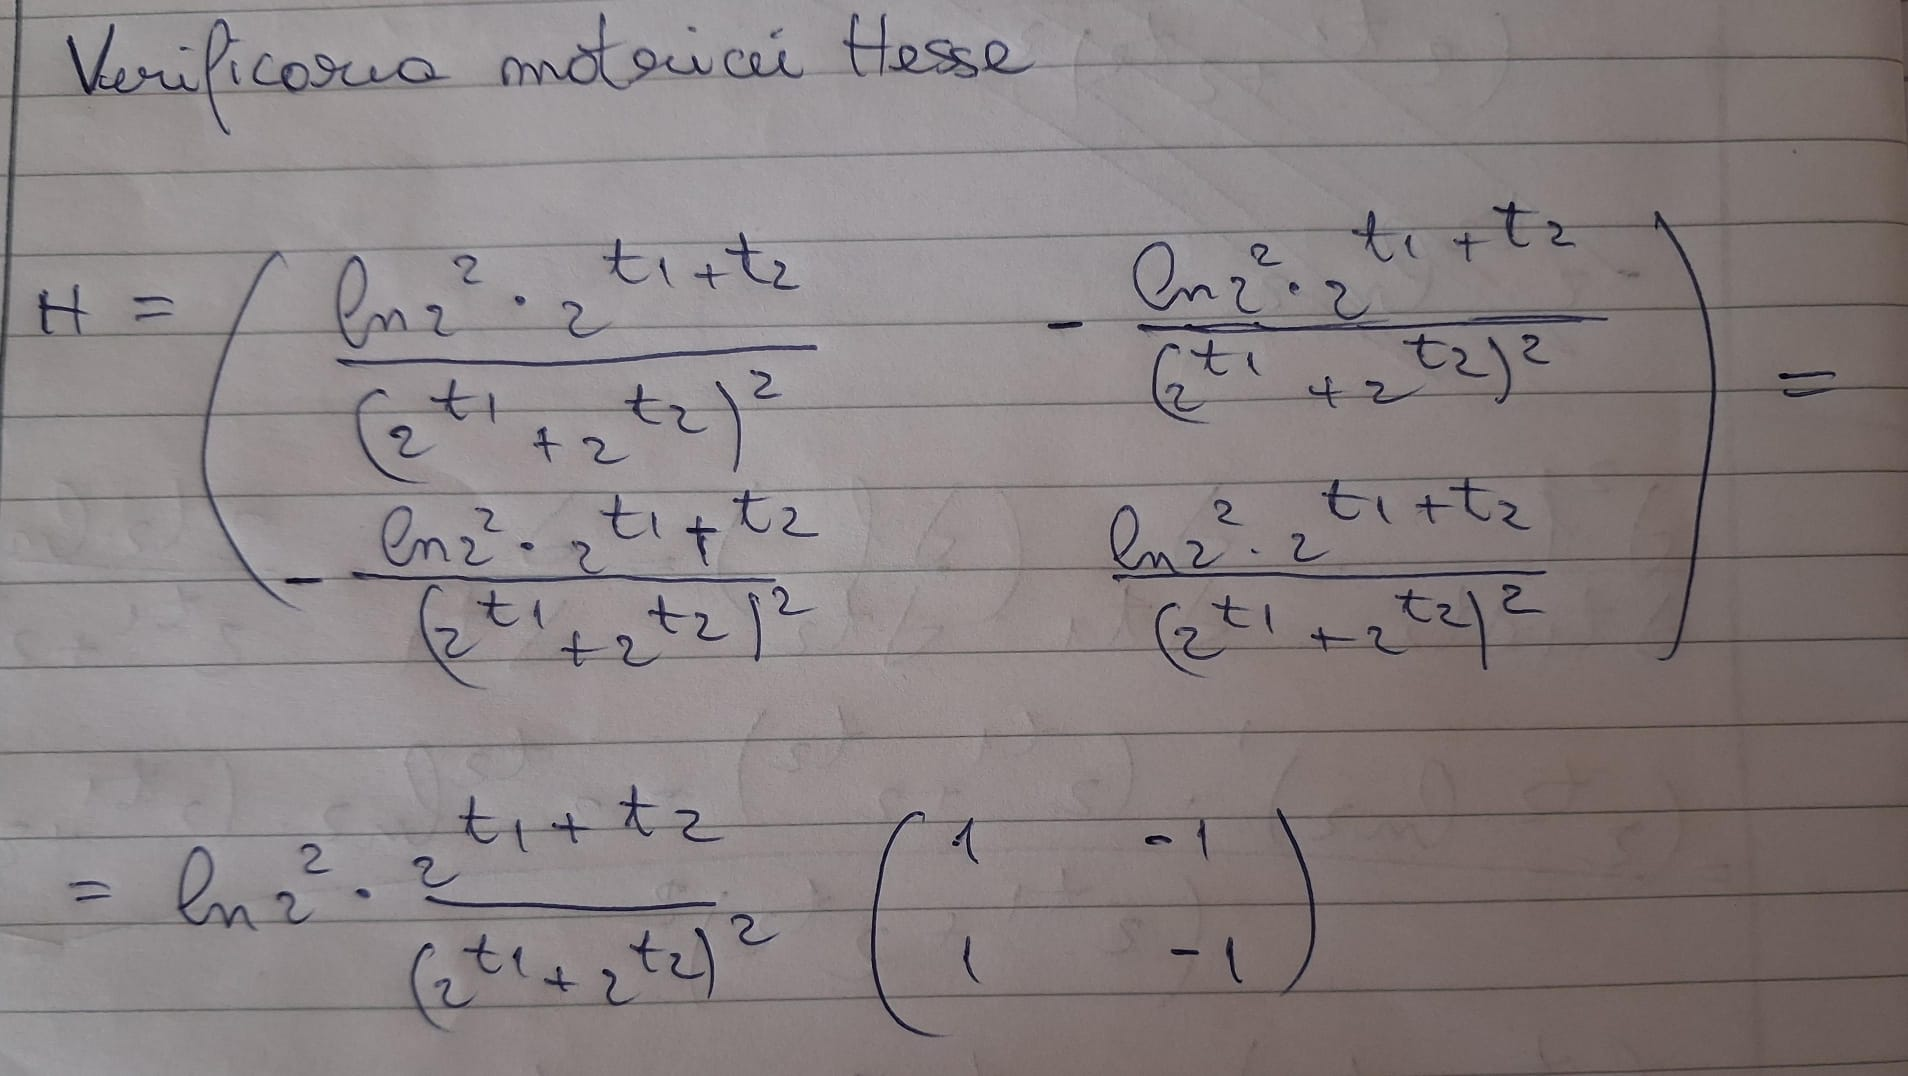 Verificarea matricei Hesse
H = ( ln2² · 2^(t1+t2) / (2^t1 + 2^t2)²   - ln2² · 2^(t1+t2) / (2^t1 + 2^t2)² ) =
( - ln2² · 2^(t1+t2) / (2^t1 + 2^t2)²   ln2² · 2^(t1+t2) / (2^t1 + 2^t2)² )
= ln2² · 2^(t1+t2) / (2^t1 + 2^t2)² ( 1   -1
1   -1 )